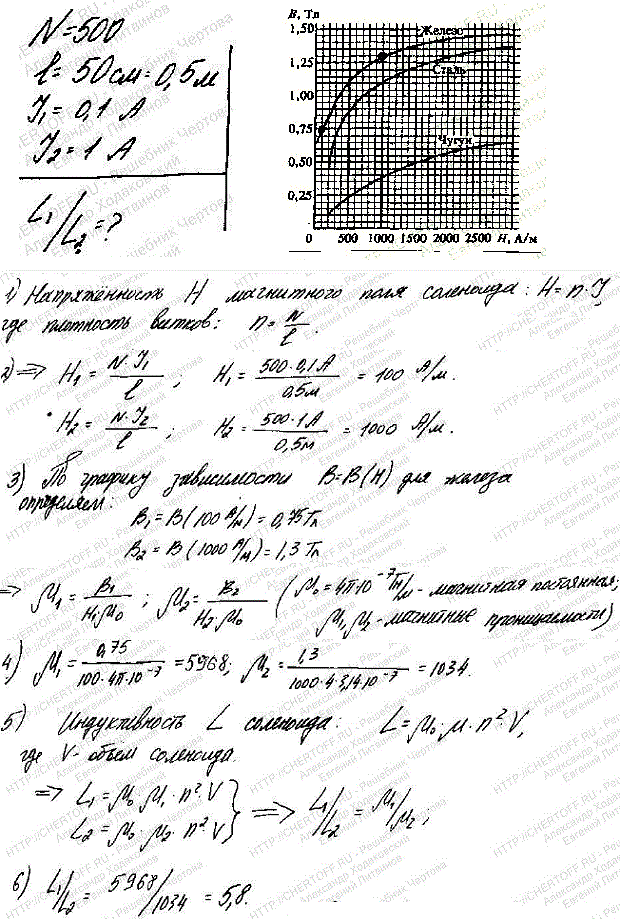 N=500
l=50см=0,5м
I₁=0,1 А
I₂=1 А
L₁/L₂=?
B, Тл
1,50
1,25
1,00
0,75
0,50
0,25
0 500 1000 1500 2000 2500 H, А/м
Железо
Сталь
Чугун
1) Напряжённость H магнитного поля соленоида: H=n·I,
где плотность витков: n=N/l.
2) => H₁=N·I₁/l; H₁=500·0,1А/0,5м=100 А/м.
H₂=N·I₂/l; H₂=500·1А/0,5м=1000 А/м.
3) По графику зависимости B=B(H) для железа
определяем:
B₁=B(100 А/м)=0,75Тл
B₂=B(1000 А/м)=1,3Тл
=> μ₁=B₁/H₁μ₀; μ₂=B₂/H₂·μ₀ (μ₀=4π·10⁻⁷Гн/м - магнитная постоянная;
μ₁,μ₂ - магнитные проницаемости)
4) μ₁=0,75/100·4π·10⁻⁷=5968; μ₂=1,3/1000·4·3,14·10⁻⁷=1034.
5) Индуктивность L соленоида: L=μ₀·μ·n²·V,
где V- объем соленоида.
=> L₁=μ₀·μ₁·n²·V
L₂=μ₀·μ₂·n²·V } => L₁/L₂=μ₁/μ₂;
6) L₁/L₂=5968/1034=5,8.
HTTP://CHERTOFF.RU - Решебник Чертова
Александр Ходаковский
Евгений Литвинов